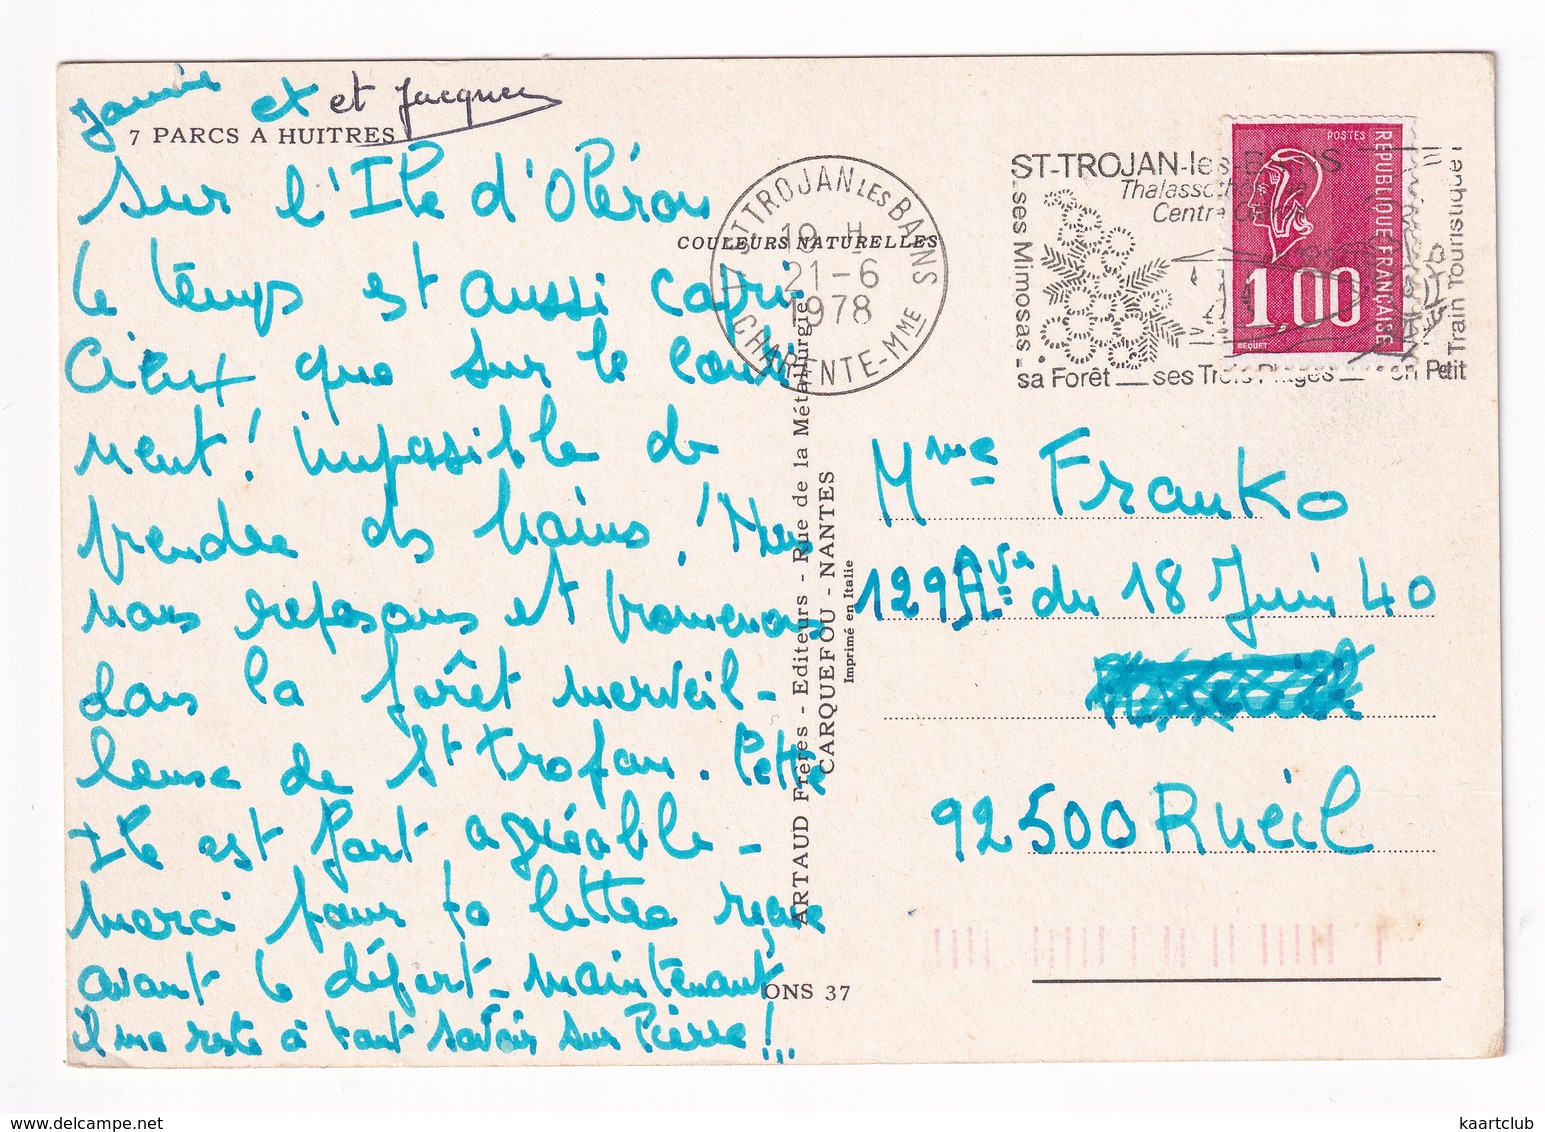 Jamie et et Jacques
7 PARCS A HUITRES
Sur l'Ile d'Oléron
le temps est aussi capri-
cieux que sur le conti
nent ! impossible de
prendre des bains ! Mais
nous reposons et promenons
dans la forêt merveil-
leuse de St Trojan. Cette
Ile est fort agréable -
merci pour ta lettre reçue
avant le départ - maintenant
il me reste à tout savoir sur Pierre !...
COULEURS NATURELLES
ARTAUD Frères - Editeurs - Rue de la Métallurgie
CARQUEFOU - NANTES
Imprimé en Italie
ONS 37
17 ST TROJAN LES BAINS
19 H
21-6
1978
CHARENTE-MME
ST-TROJAN-les-BAINS
Thalassothérapie
Centre
ses Mimosas
sa Forêt _ ses Trois Plages _ en Petit
Train Touristique
POSTES
REPUBLIQUE FRANÇAISE
1,00
BEQUET
Mme Franko
129 Ave du 18 Juin 40
92500 Rueil
www.delcampe.net
kaartclub